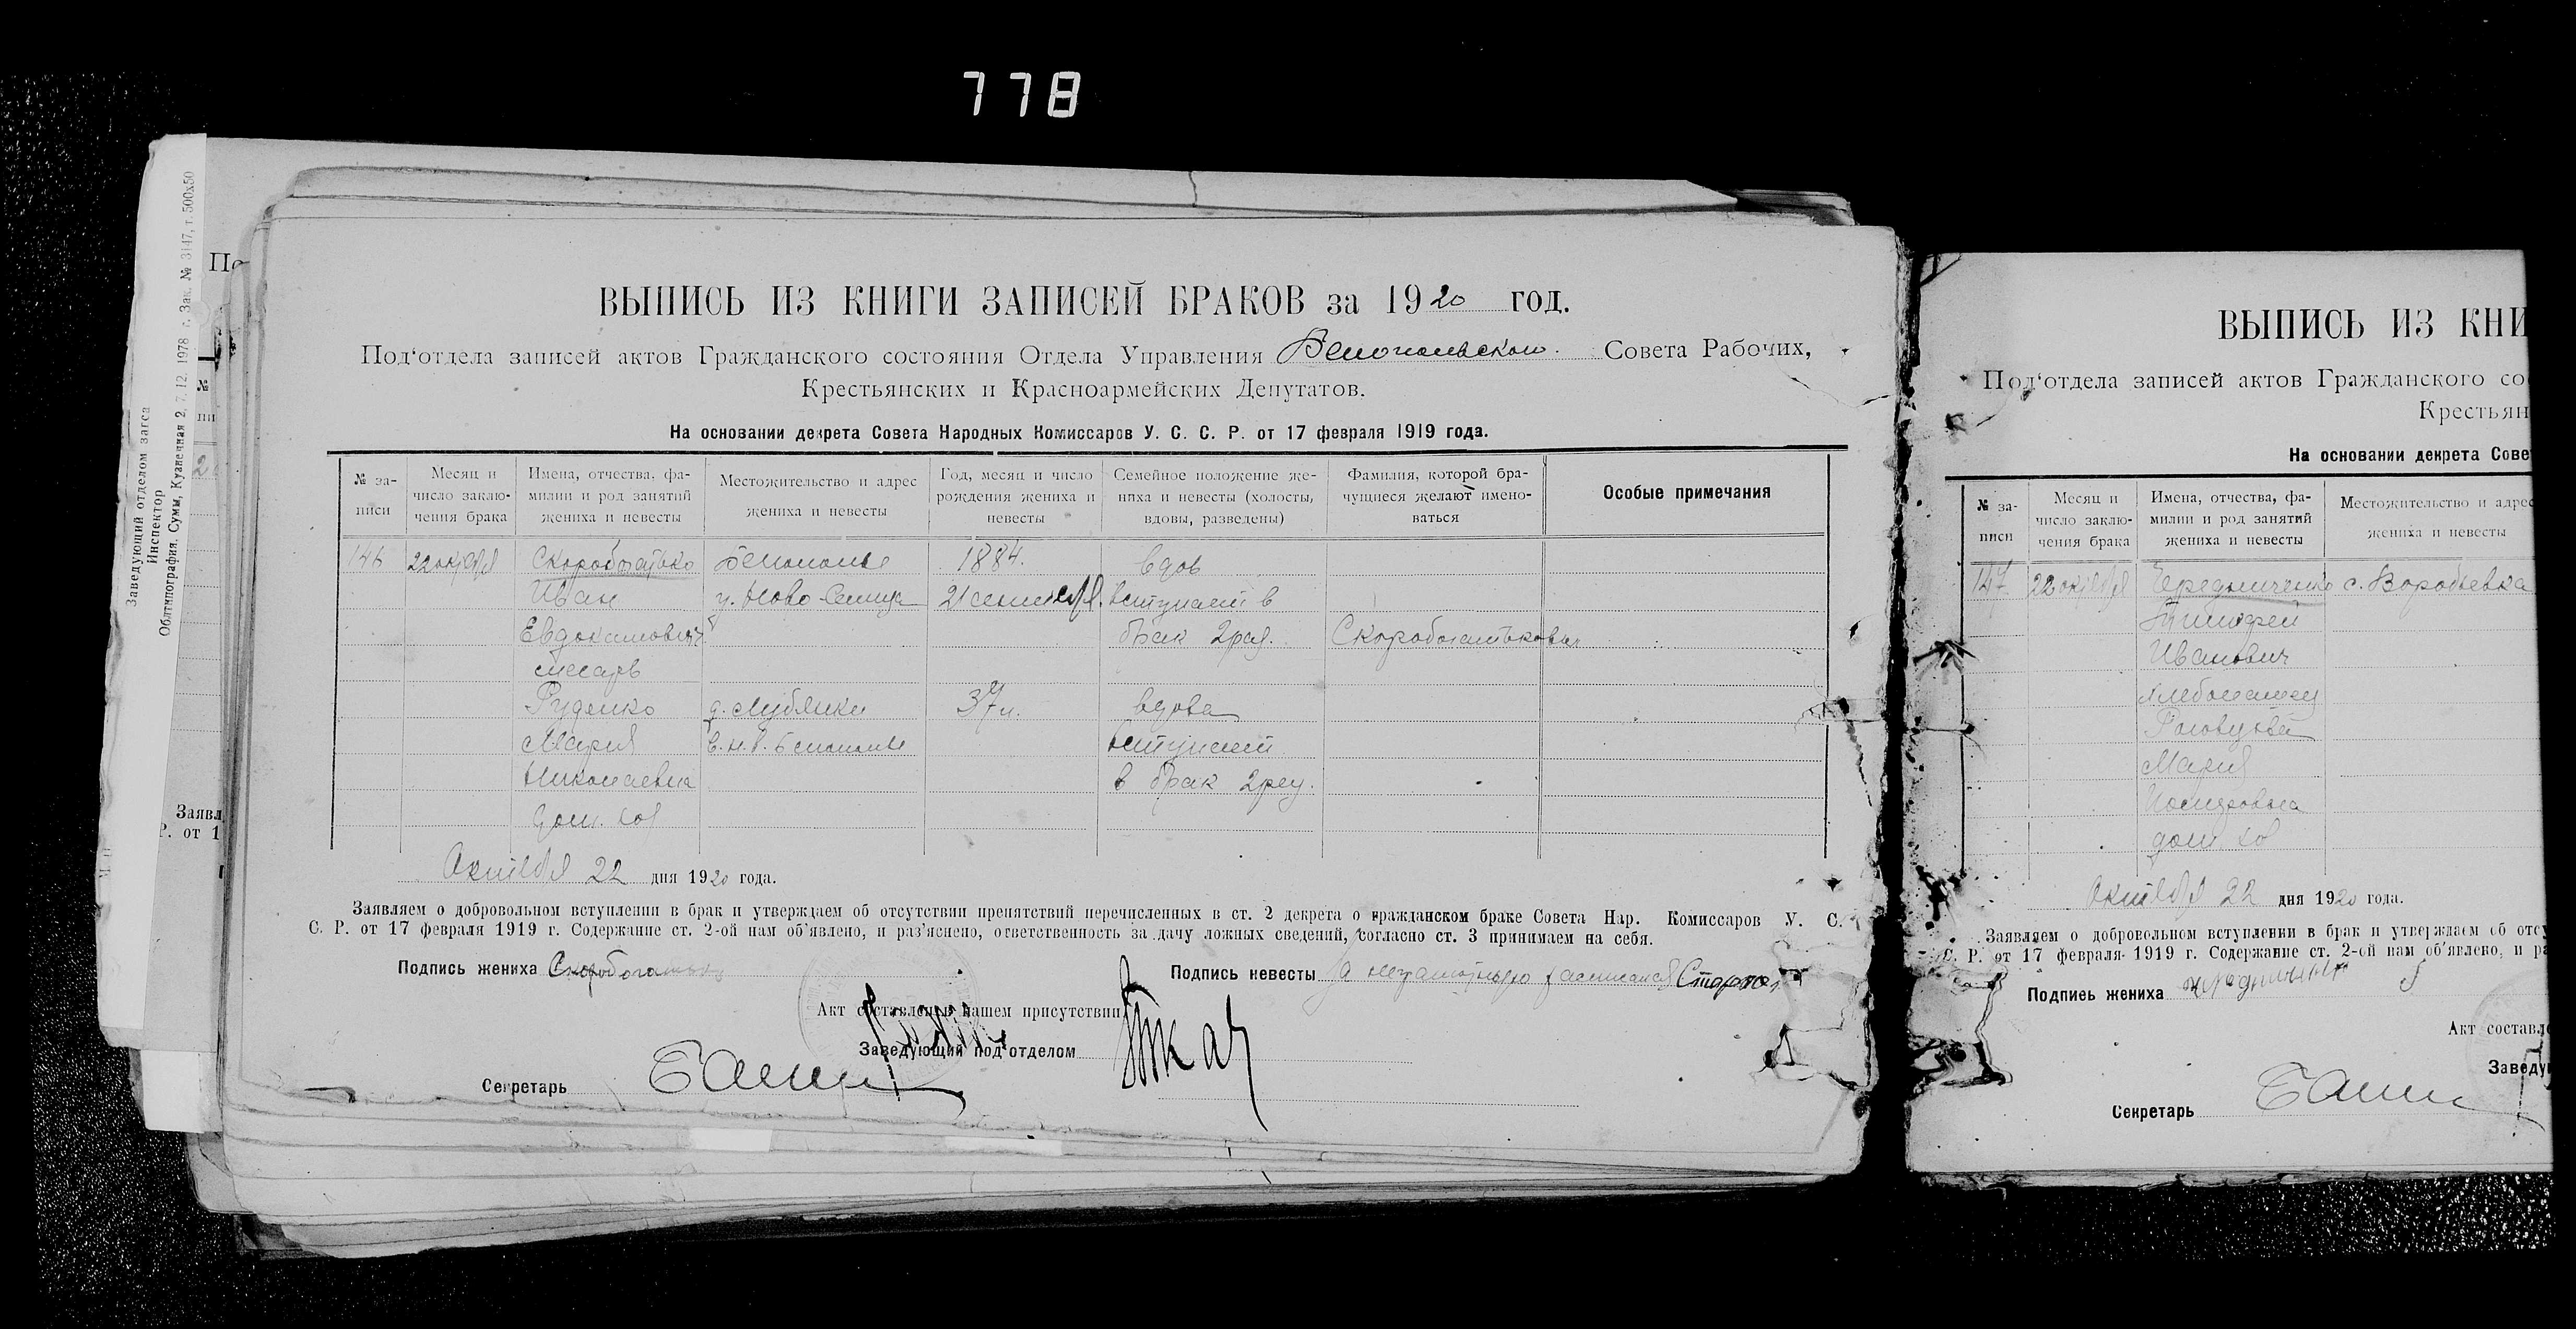 778
Заведующий отделом загса
Инспектор
Облтипография. Сумы, Кузнечная 2, 7. 12. 1978 г. Зак. № 3147, т. 500х50
ВЫПИСЬ ИЗ КНИГИ ЗАПИСЕЙ БРАКОВ за 1920 год.
Под'отдела записей актов Гражданского состояния Отдела Управления Белопольского Совета Рабочих,
Крестьянских и Красноармейских Депутатов.
На основании декрета Совета Народных Комиссаров У. С. С. Р. от 17 февраля 1919 года.
№ за-писи
Месяц и число заклю-чения брака
Имена, отчества, фа-милии и род занятий жениха и невесты
Местожительство и адрес жениха и невесты
Год, месяц и число рождения жениха и невесты
Семейное положение же-ниха и невесты (холосты, вдовы, разведены)
Фамилия, которой бра-чущиеся желают имено-ваться
Особые примечания
146 22 октября Скоробогатько Белополье 1884. вдов
Иван у. Ново-Сумская 21 сентября. вступает в
Евдокимович брак 2 раз. Скоробогатьковы
слесарь
Руденко д. Лубянки 37 л. вдова
Мария в. н. в. Белополье вступает
Николаевна в брак 2 раз.
дом. хоз
Октября 22 дня 1920 года.
Заявляем о добровольном вступлении в брак и утверждаем об отсутствии препятствий перечисленных в ст. 2 декрета о гражданском браке Совета Нар. Комиссаров У. С.
С. Р. от 17 февраля 1919 г. Содержание ст. 2-ой нам об'явлено, и раз'яснено, ответственность за дачу ложных сведений, согласно ст. 3 принимаем на себя.
Подпись жениха Скоробогатько Подпись невесты За неграмотную расписался
Акт составлен в нашем присутствии
Заведующий под'отделом
Секретарь
ВЫПИСЬ ИЗ КНИ
Под'отдела записей актов Гражданского со
Крестьян
На основании декрета Сове
№ за-писи
Месяц и число заклю-чения брака
Имена, отчества, фа-милии и род занятий жениха и невесты
Местожительство и адрес жениха и невесты
147 22 октября Чередниченко с. Воробьевка
Тимофей
Иванович
хлебопашец
Роговцова
Мария
дом. хоз
Октября 22 дня 1920 года.
Заявляем о добровольном вступлении в брак и утверждаем об отсу
С. Р. от 17 февраля 1919 г. Содержание ст. 2-ой нам об'явлено, и ра
Подпись жениха
Акт составле
Заведу
Секретарь